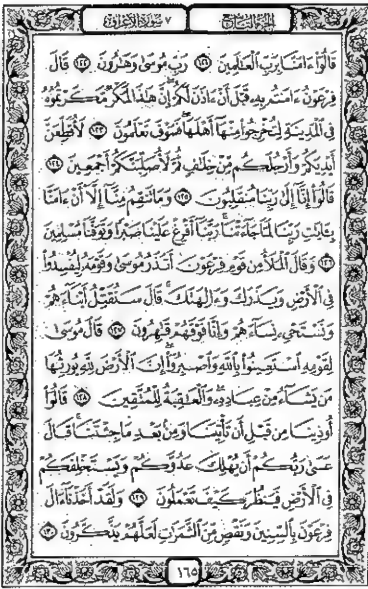 الجزء التاسع ٧ سورة الأعراف
قَالُوٓا۟ ءَامَنَّا بِرَبِّ ٱلْعَٰلَمِينَ ١٢١ رَبِّ مُوسَىٰ وَهَٰرُونَ ١٢٢ قَالَ
فِرْعَوْنُ ءَامَنتُم بِهِۦ قَبْلَ أَنْ ءَاذَنَ لَكُمْ إِنَّ هَٰذَا لَمَكْرٌ مَّكَرْتُمُوهُ
فِى ٱلْمَدِينَةِ لِتُخْرِجُوا۟ مِنْهَآ أَهْلَهَا فَسَوْفَ تَعْلَمُونَ ١٢٣ لَأُقَطِّعَنَّ
أَيْدِيَكُمْ وَأَرْجُلَكُم مِّنْ خِلَٰفٍ ثُمَّ لَأُصَلِّبَنَّكُمْ أَجْمَعِينَ ١٢٤
قَالُوٓا۟ إِنَّآ إِلَىٰ رَبِّنَا مُنقَلِبُونَ ١٢٥ وَمَا تَنقِمُ مِنَّآ إِلَّآ أَنْ ءَامَنَّا
بِـَٔايَٰتِ رَبِّنَا لَمَّا جَآءَتْنَا رَبَّنَآ أَفْرِغْ عَلَيْنَا صَبْرًا وَتَوَفَّنَا مُسْلِمِينَ
١٢٦ وَقَالَ ٱلْمَلَأُ مِن قَوْمِ فِرْعَوْنَ أَتَذَرُ مُوسَىٰ وَقَوْمَهُۥ لِيُفْسِدُوا۟
فِى ٱلْأَرْضِ وَيَذَرَكَ وَءَالِهَتَكَ قَالَ سَنُقَتِّلُ أَبْنَآءَهُمْ
وَنَسْتَحْىِۦ نِسَآءَهُمْ وَإِنَّا فَوْقَهُمْ قَٰهِرُونَ ١٢٧ قَالَ مُوسَىٰ
لِقَوْمِهِ ٱسْتَعِينُوا۟ بِٱللَّهِ وَٱصْبِرُوٓا۟ إِنَّ ٱلْأَرْضَ لِلَّهِ يُورِثُهَا
مَن يَشَآءُ مِنْ عِبَادِهِۦ وَٱلْعَٰقِبَةُ لِلْمُتَّقِينَ ١٢٨ قَالُوٓا۟
أُوذِينَا مِن قَبْلِ أَن تَأْتِيَنَا وَمِنۢ بَعْدِ مَا جِئْتَنَا قَالَ
عَسَىٰ رَبُّكُمْ أَن يُهْلِكَ عَدُوَّكُمْ وَيَسْتَخْلِفَكُمْ
فِى ٱلْأَرْضِ فَيَنظُرَ كَيْفَ تَعْمَلُونَ ١٢٩ وَلَقَدْ أَخَذْنَآ ءَالَ
فِرْعَوْنَ بِٱلسِّنِينَ وَنَقْصٍ مِّنَ ٱلثَّمَرَٰتِ لَعَلَّهُمْ يَذَّكَّرُونَ ١٣٠
١٦٥